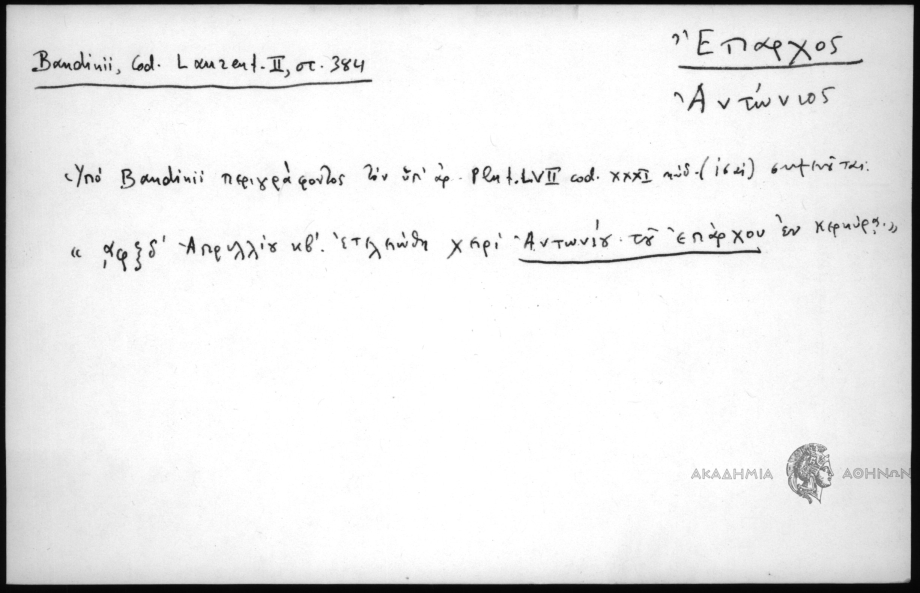 Bandinii, Cod. Laurent. II, σε. 384
Ἔπαρχος
Ἀντώνιος
Ὑπό Bandinii περιγράφοντος τὸν ὑπ' ἀρ. Plut. LVII cod. XXXI κώδ. σημειοῦται:
« ͵αφξδ' Ἀπριλλίου κβ'. Ἐτελειώθη χειρί Ἀντωνίου τοῦ Ἐπάρχου ἐν Κερκύρᾳ.»
ΑΚΑΔΗΜΙΑ ΑΘΗΝΩΝ